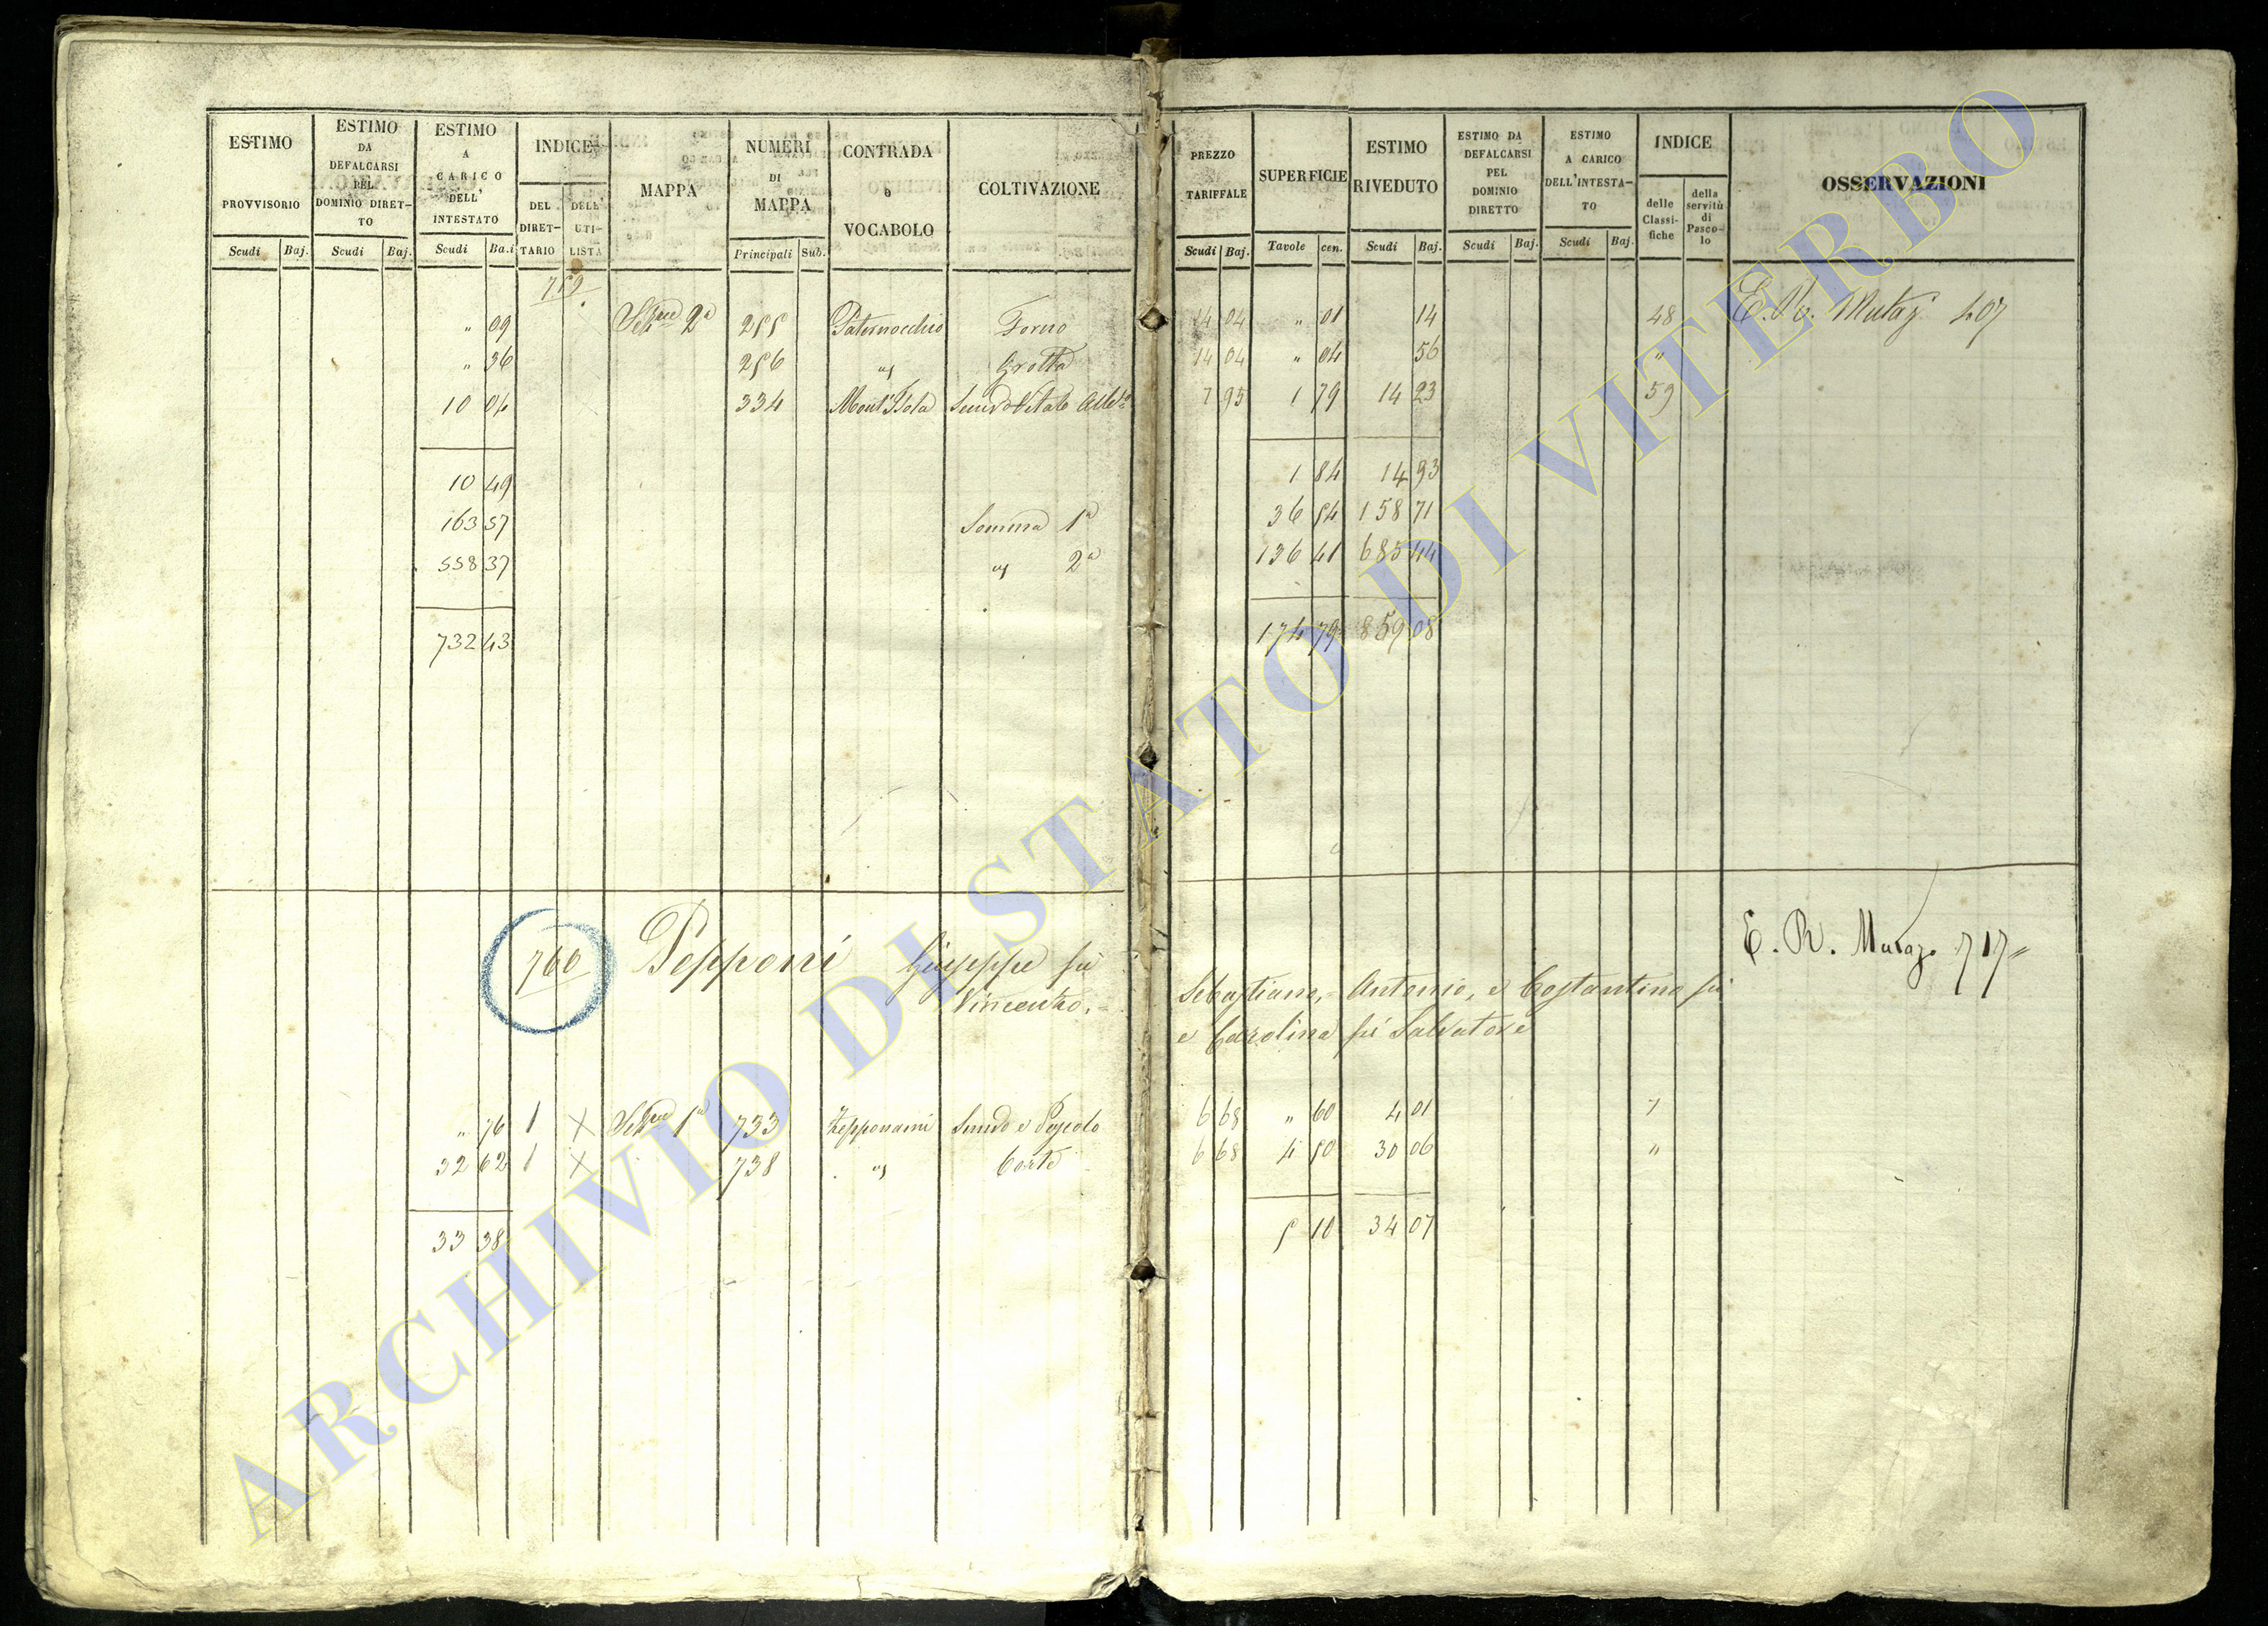 ESTIMO PROVVISORIO
ESTIMO DA DEFALCARSI PEL DOMINIO DIRET-TO
ESTIMO A CARICO DELL' INTESTATO
INDICE
DEL DIRET-TARIO
DELL' UTI-LISTA
MAPPA
NUMERI DI MAPPA
CONTRADA o VOCABOLO
COLTIVAZIONE
PREZZO TARIFFALE
SUPERFICIE
ESTIMO RIVEDUTO
ESTIMO DA DEFALCARSI PEL DOMINIO DIRETTO
ESTIMO A CARICO DELL'INTESTA-TO
INDICE
delle Classi-fiche
della servitù di Pasco-lo
OSSERVAZIONI
Scudi Baj. Scudi Baj. Scudi Ba.i Principali Sub. Scudi Baj. Tavole cen. Scudi Baj. Scudi Baj. Scudi Baj.
759
" 09 2a 255 Paternocchio Forno 14 04 " 01 14 48 E. R. Mutaz. 407
" 36 256 " Grotta 14 04 " 04 56 "
10 04 334 Mont'Isola 7 95 1 79 14 23 59
10 49 1 84 14 93
163 57 Somma 1a 36 54 158 71
558 37 " 2a 136 41 685 44
732 43 174 79 859 08
760 Pepponi Giuseppe fu
Vincenzo,
Sebastiano, Antonio, e Costantino fu
e Carolina fu Salvatore
E. R. Mutaz. 717
" 76 1 X 1a 733 Zepponami Semvo e Pascolo 6 68 " 60 4 01 7
32 62 1 X 738 " Corte 6 68 4 50 30 06 "
33 38 5 10 34 07
ARCHIVIO DI STATO DI VITERBO